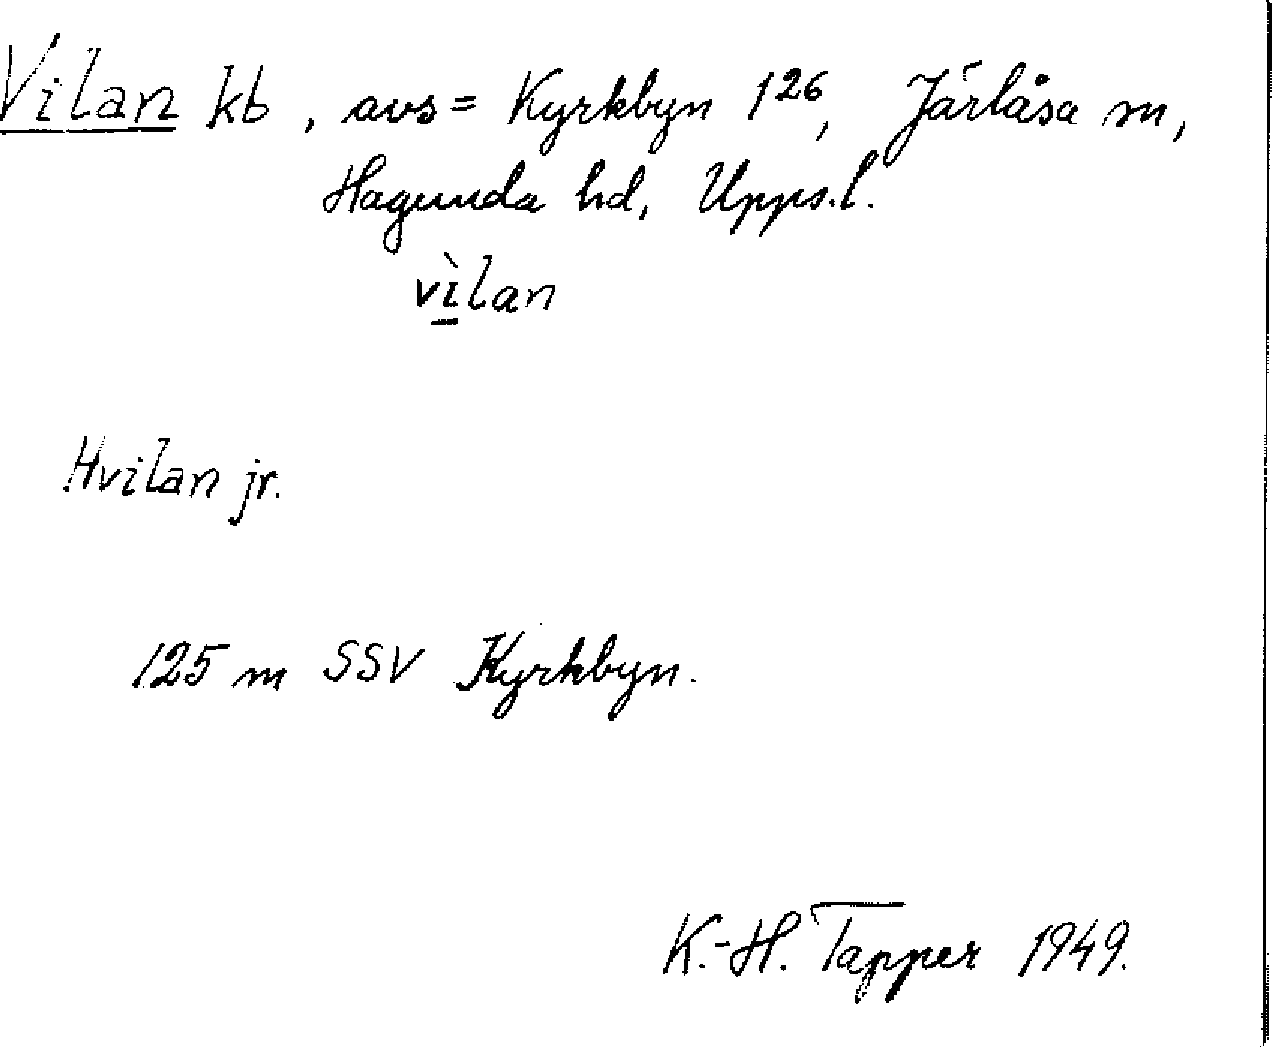 Vilan kb, avs= Kyrkbyn 1²⁶, Järlåsa sn,
Hagunda hd, Upps.l.
vìlan
Hvilan jr.
125 m SSV Kyrkbyn.
K.-H. Tapper 1949.